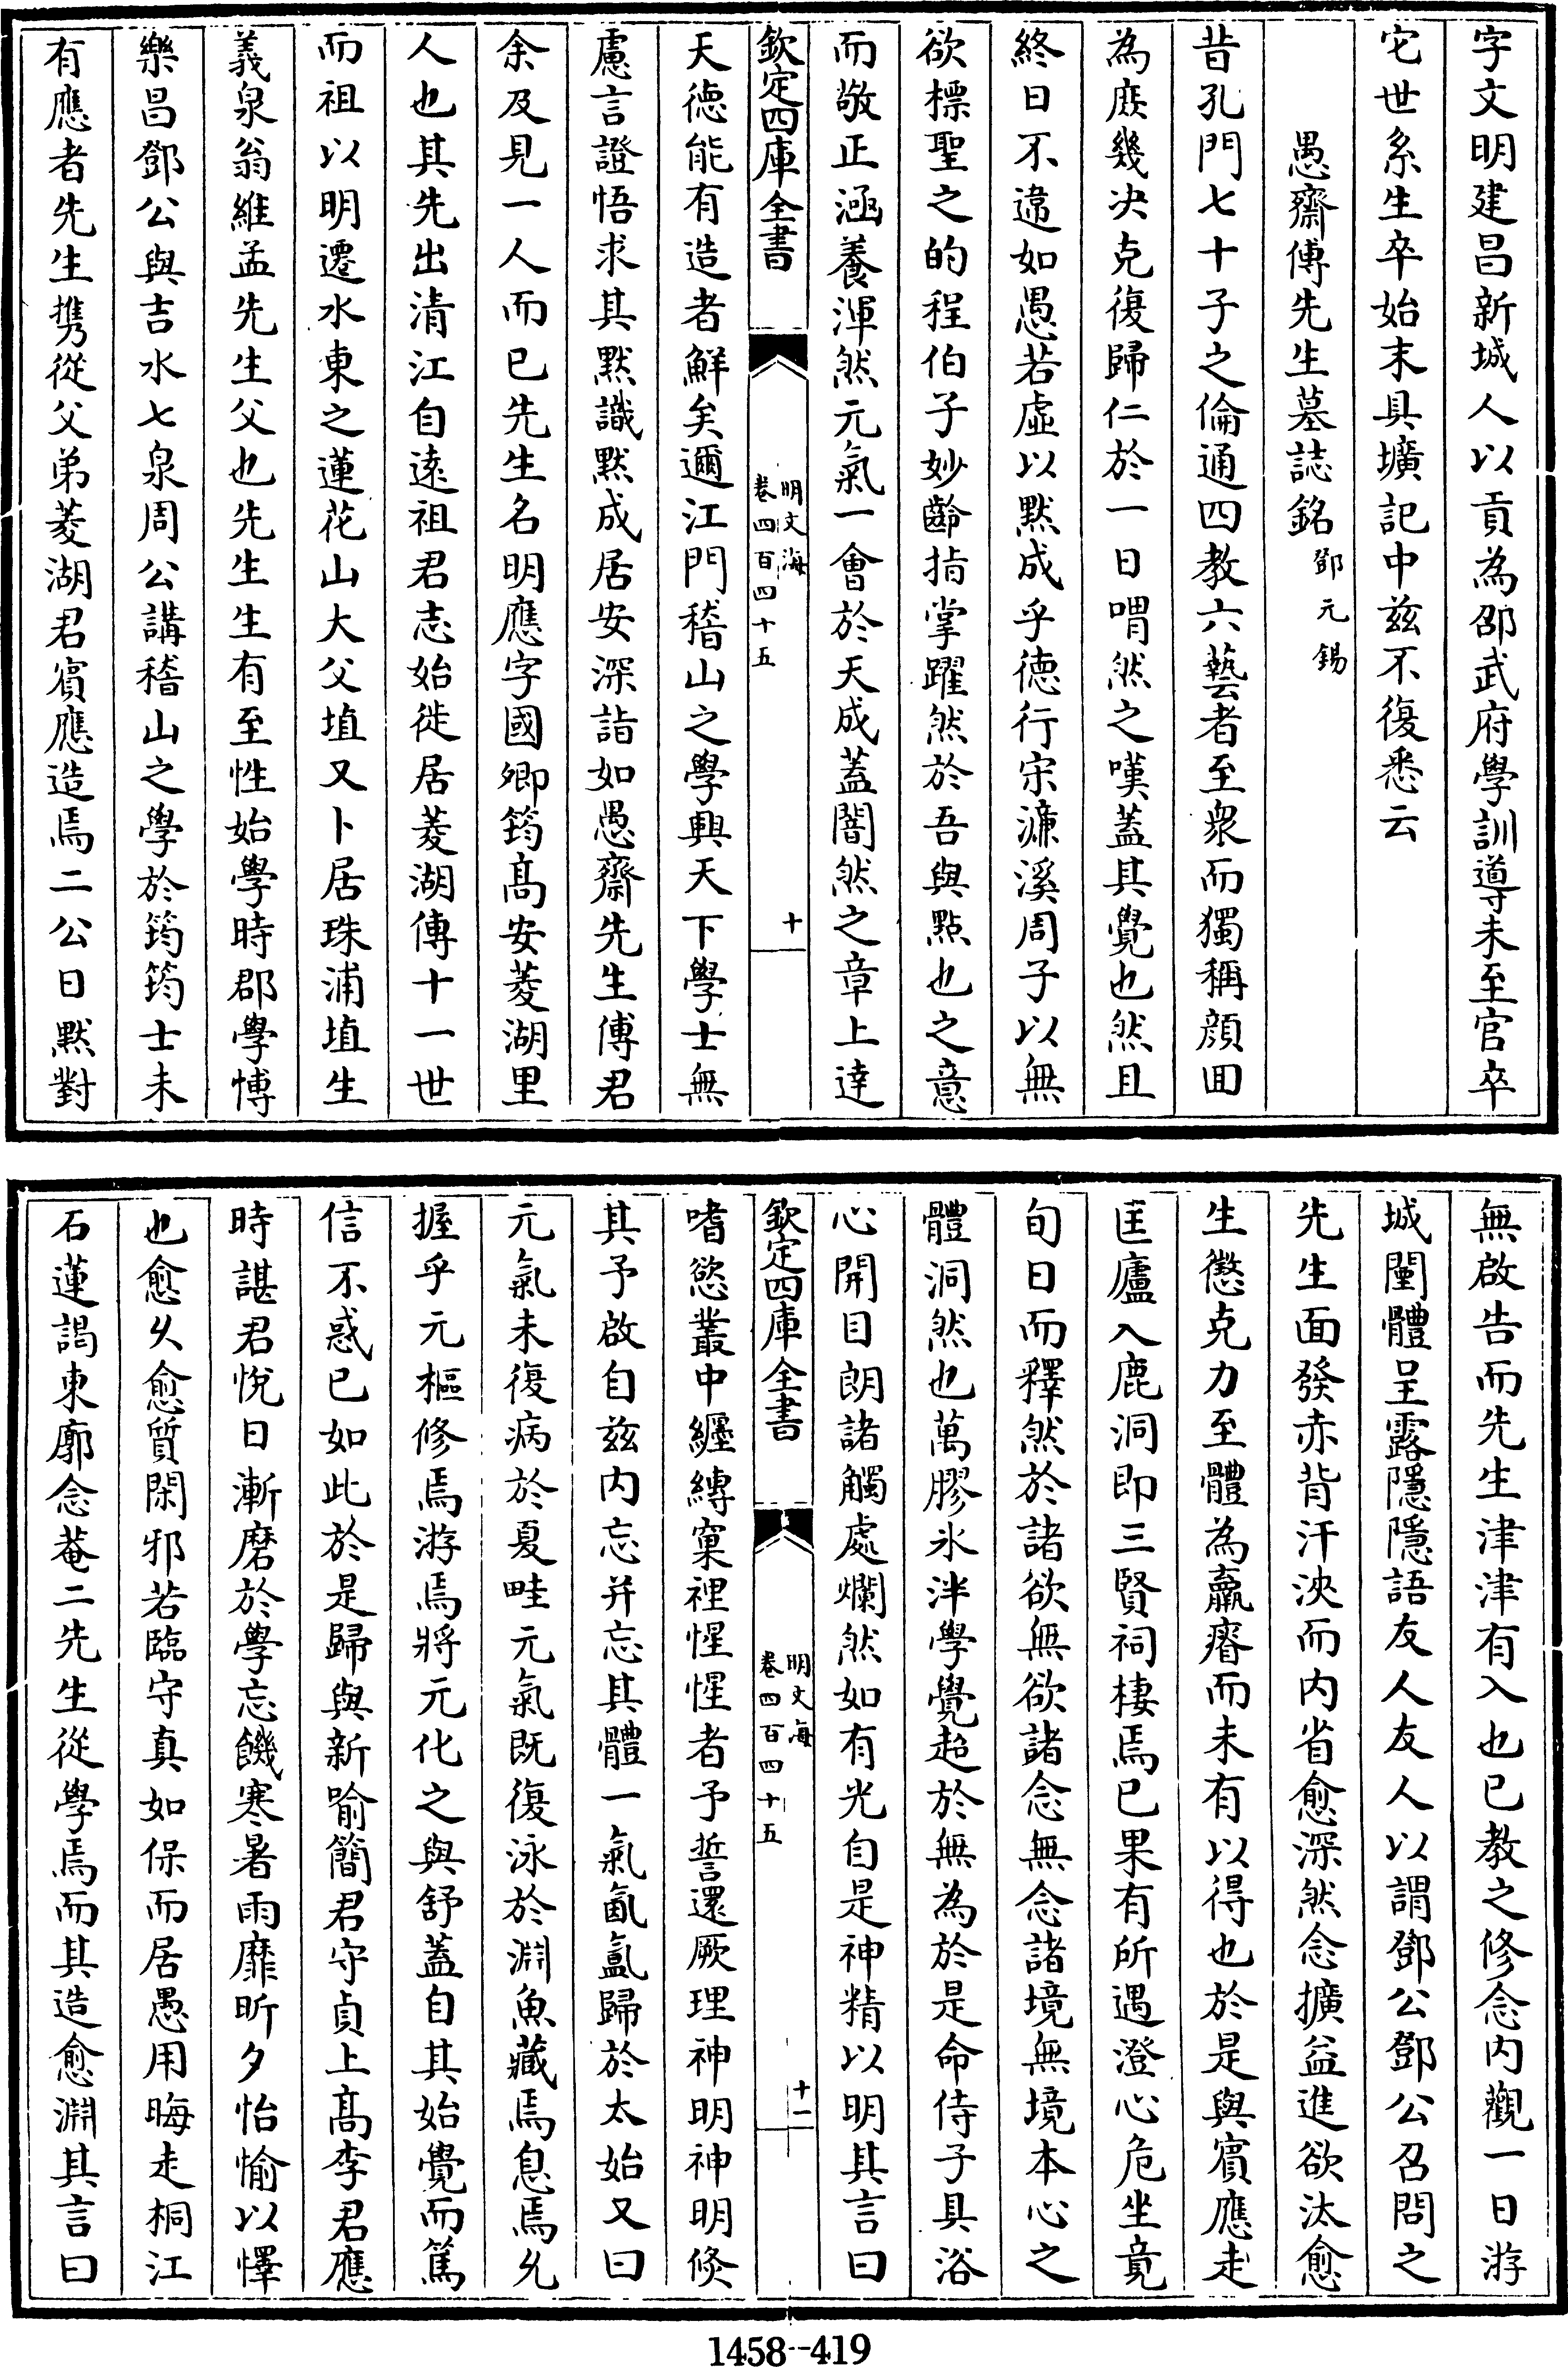 字文明建昌新城人以貢為邵武府學訓導未至官卒
它世系生卒始末具壙記中兹不復悉云
愚齋傅先生墓誌銘鄧元錫
昔孔門七十子之倫通四教六藝者至衆而獨稱顔回
為庶幾决克復歸仁於一日喟然之嘆蓋其覺也然且
終日不違如愚若虚以默成乎德行宋濂溪周子以無
欲標聖之的程伯子妙齡指掌躍然於吾與點也之意
而敬正涵養渾然元氣一會於天成蓋闇然之章上達
欽定四庫全書
明文海
卷四百四十五
十
天德能有造者鮮矣邇江門稽山之學興天下學士無
慮言證悟求其默識默成居安深詣如愚齋先生傅君
余及見一人而已先生名明應字國卿筠高安菱湖里
人也其先出清江自逺祖君志始徙居菱湖傳十一世
而祖以明遷水東之蓮花山大父埴又卜居珠浦埴生
義泉翁維孟先生父也先生生有至性始學時郡學博
樂昌鄧公與吉水七泉周公講稽山之學於筠筠士未
有應者先生携從父弟菱湖君賓應造焉二公日默對
無啟告而先生津津有入也已教之修念内觀一日游
城闉體呈露隱隱語友人友人以謂鄧公鄧公召問之
先生面發赤背汗浹而内省愈深然念擴益進欲汰愈
生懲克力至體為羸瘠而未有以得也於是與賓應走
匡廬入鹿洞即三賢祠棲焉已果有所遇澄心危坐竟
旬日而釋然於諸欲無欲諸念無念諸境無境本心之
體洞然也萬膠氷泮學覺超於無為於是命侍子具浴
心開目朗諸觸處爛然如有光自是神精以明其言曰
欽定四庫全書
明文海
卷四百四十五
十一
嗜慾叢中纒縛窠裡惺惺者予誓還厥理神明神明倐
其予啟自兹内忘并忘其體一氣氤氲歸於太始又曰
元氣未復病於夏畦元氣既復泳於淵魚藏焉息焉允
握乎元樞修焉游焉將元化之與舒蓋自其始覺而篤
信不惑已如此於是歸與新喻簡君守貞上高李君應
時諶君悅日漸磨於學忘饑寒暑雨靡昕夕怡愉以懌
也愈乆愈質閑邪若臨守真如保而居愚用晦走桐江
石蓮謁東廓念菴二先生從學焉而其造愈淵其言曰
1458--419